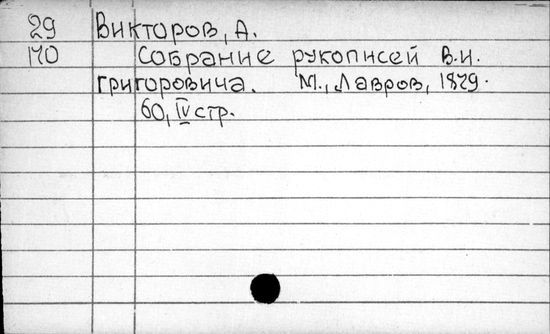 29 Викторов, А.
170 Собрание рукописей В.И.
Григоровича. М., Лавров, 1879.
60, IV стр.